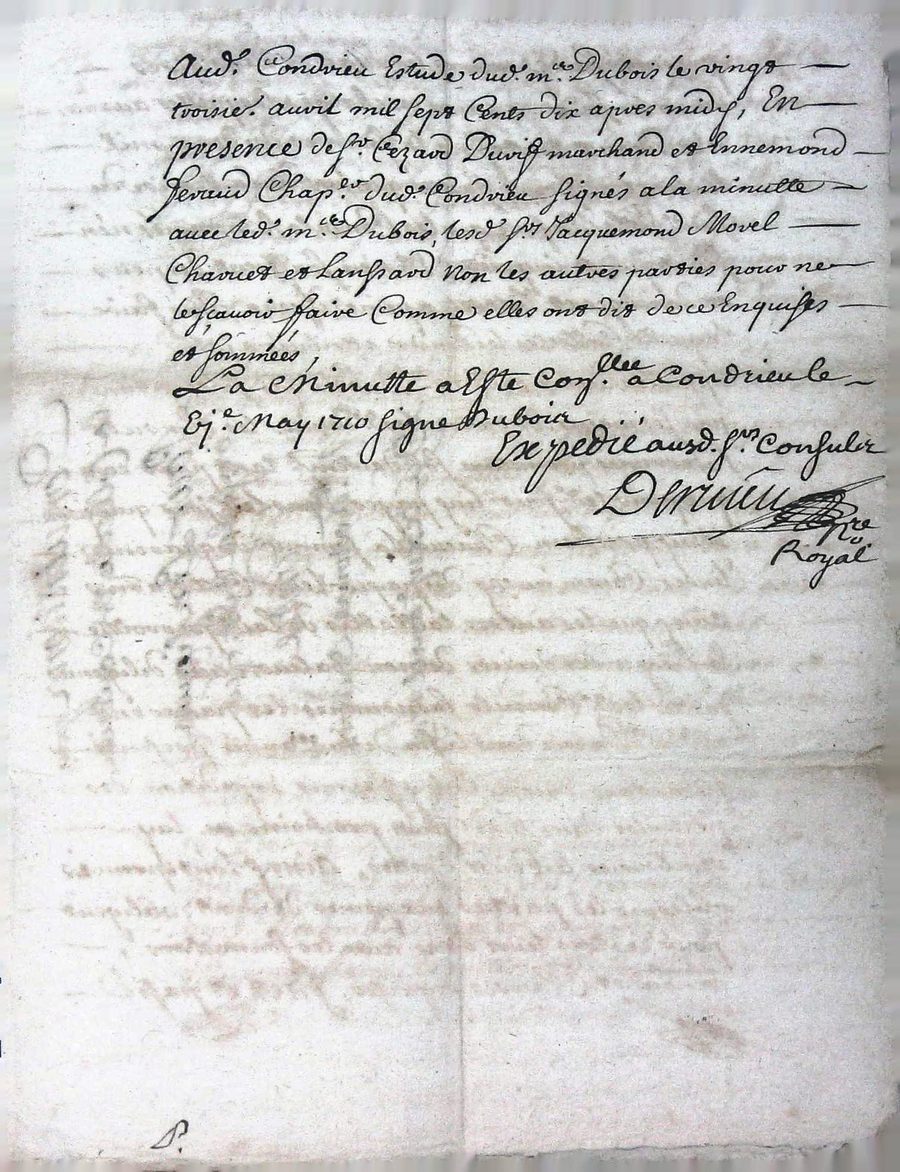 Aud.^t Condrieu Estude dud.^t m.^e Dubois le vingt
troisie.^e auvil mil sept Cents dix apres midy, En
presence de s.^r Cézard Duvif marchand et Ennemond
feraud Chap.^er dud.^t Condrieu signés a la minutte
avec led.^t m.^e Dubois, lesd.^t s.^rs Jacquemond Morel
Charvet et Lanssard Non les autres parties pour ne
le sçavoir faire Comme elles ont dit de ce Enquises
et sommées,
La Minutte a Este Con.^llee a Condrieu le
Ej.^e May 1710 signe Dubois
Expedié ausd. s.^rs Consuls
Dervieu
N^re
Royal